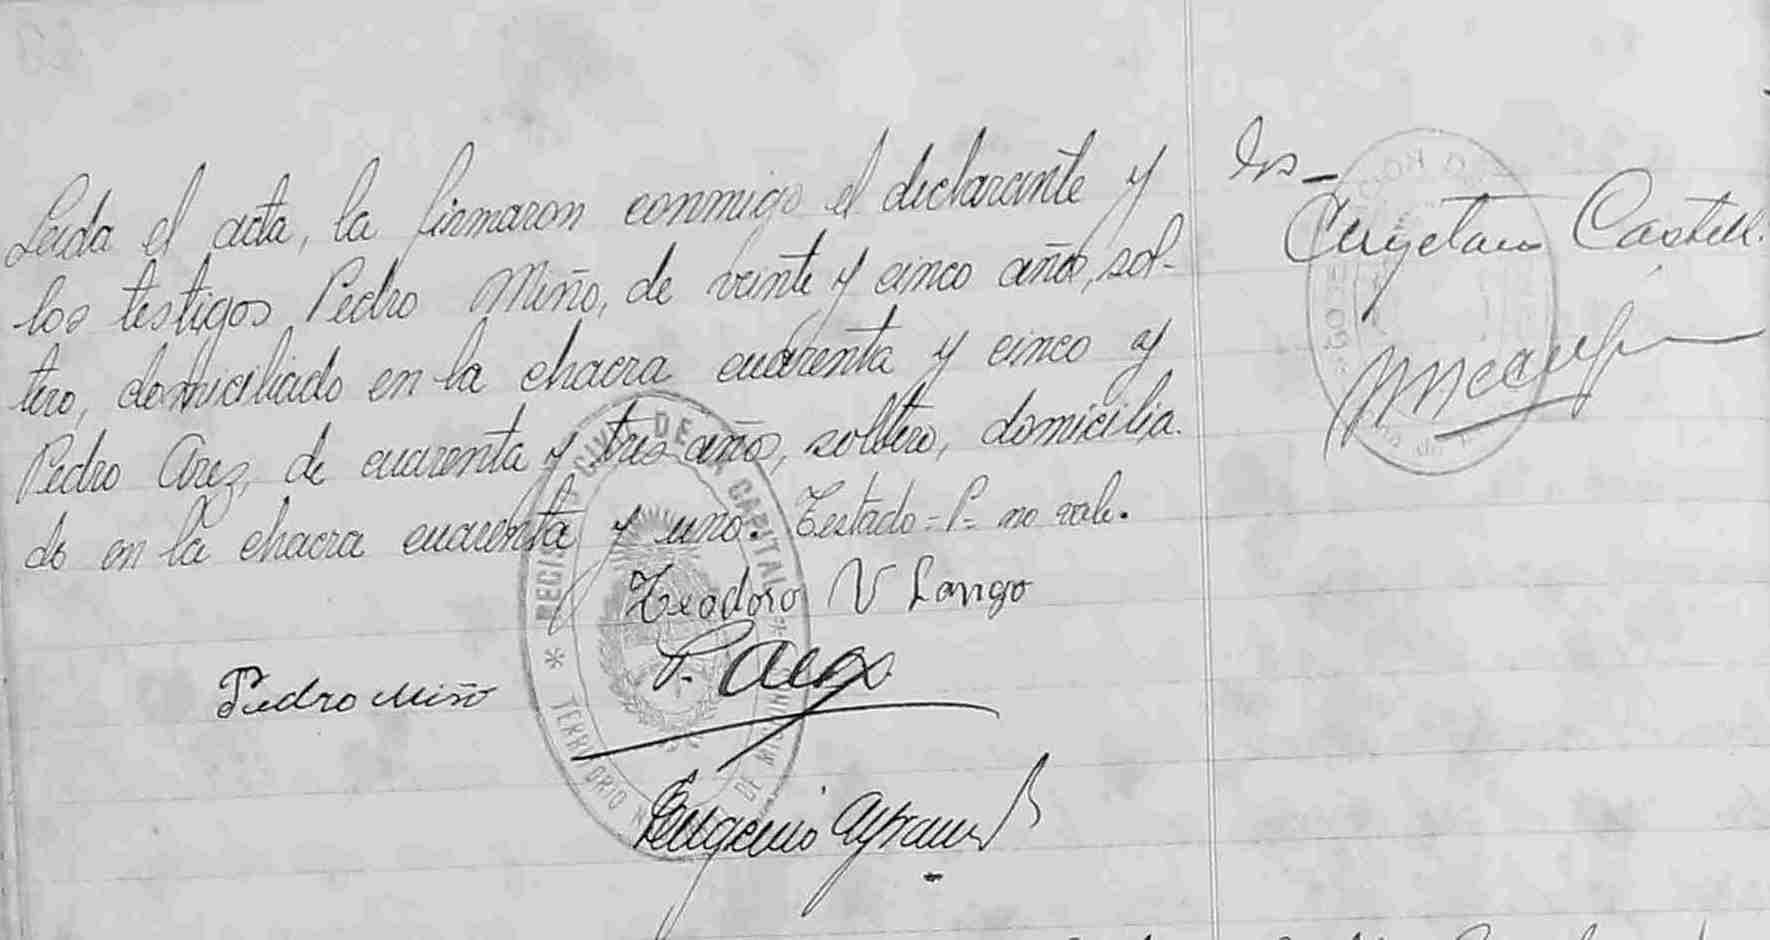 Leida el acta, la firmaron conmigo el declarante y
los testigos Pedro Miño, de veinte y cinco años, sol-
tero, domiciliado en la chacra cuarenta y cinco y
Pedro Arez, de cuarenta y tres años, soltero, domicilia.
do en la chacra cuarenta y uno. Testado=P= no vale.
Teodoro V Lango
Pedro Miño
P. Arez
Eugenio
REGISTRO CIVIL DE LA CAPITAL
TERRITORIO N. DE MISIONES
Cayetano Castell.